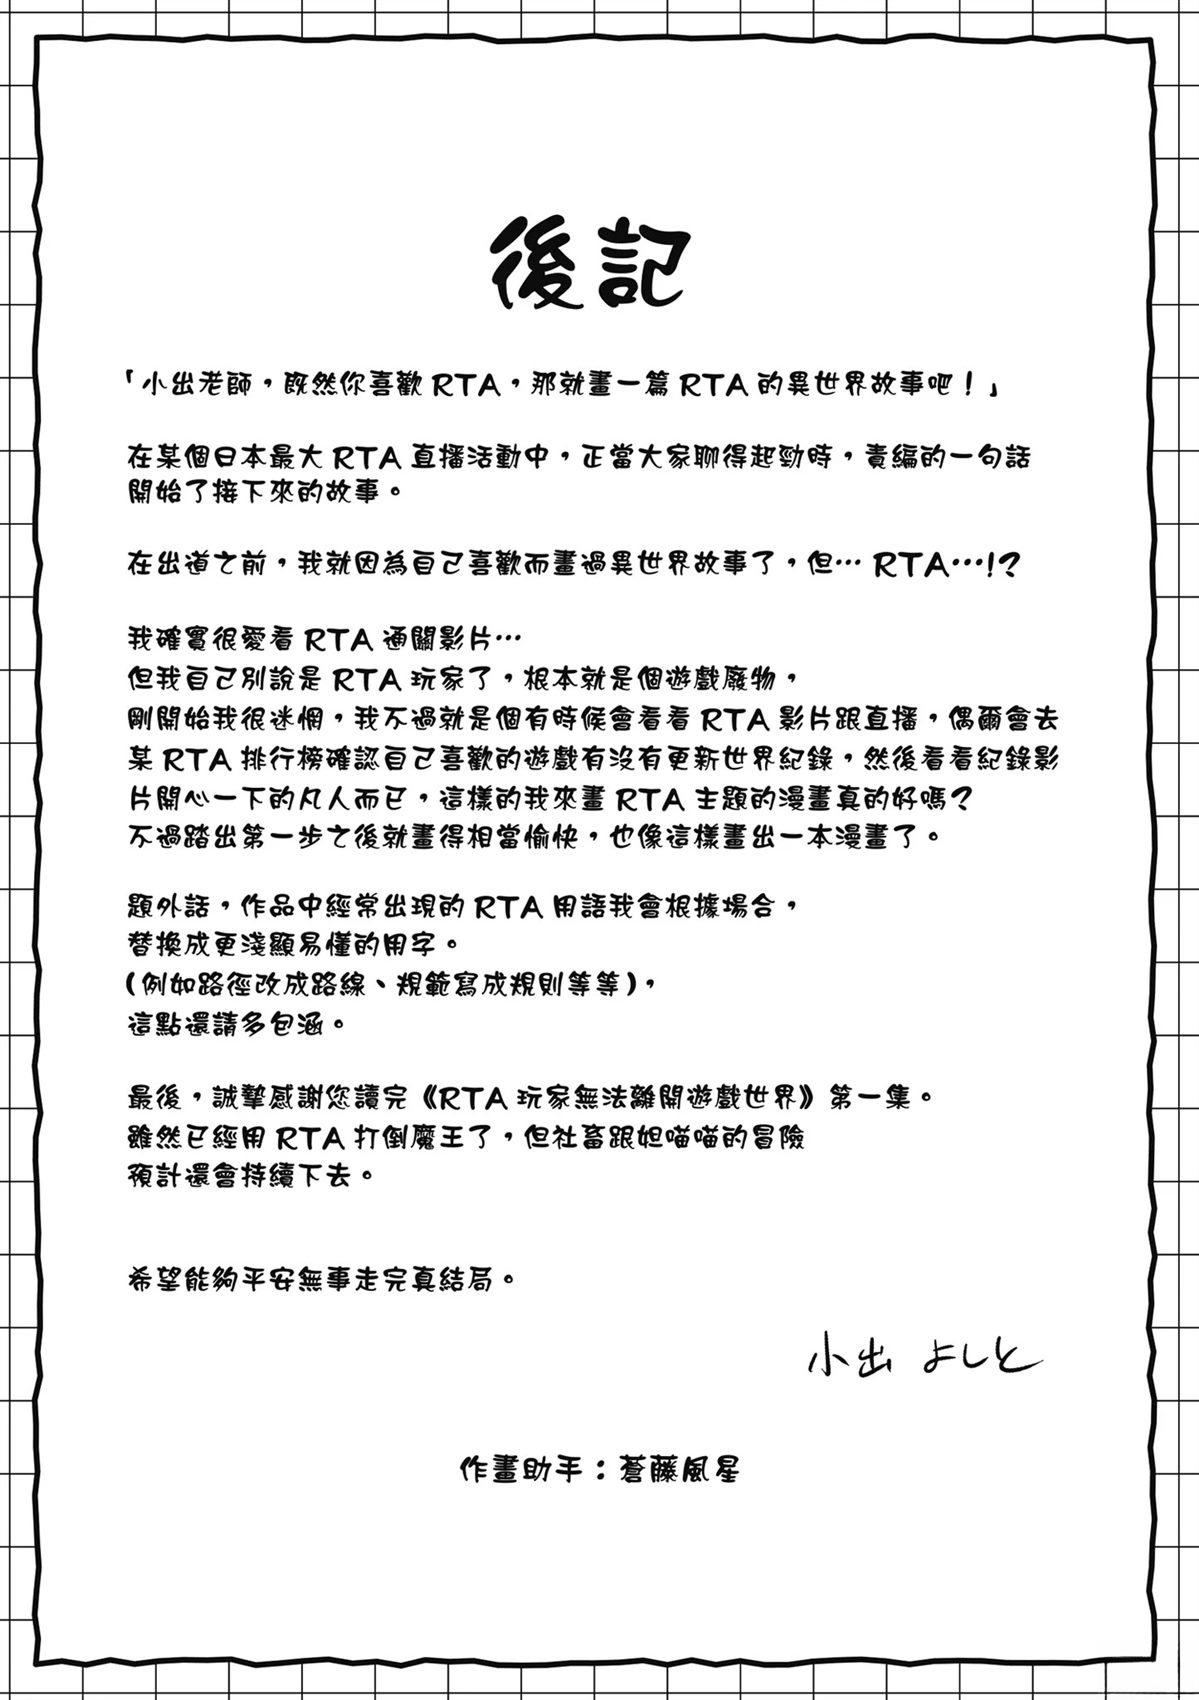 後記
「小出老師，既然你喜歡RTA，那就畫一篇RTA的異世界故事吧！」
在某個日本最大RTA直播活動中，正當大家聊得起勁時，責編的一句話
開始了接下來的故事。
在出道之前，我就因為自己喜歡而畫過異世界故事了，但…RTA…!?
我確實很愛看RTA通關影片…
但我自己別說是RTA玩家了，根本就是個遊戲廢物，
剛開始我很迷惘，我不過就是個有時候會看看RTA影片跟直播，偶爾會去
某RTA排行榜確認自己喜歡的遊戲有沒有更新世界紀錄，然後看看紀錄影
片開心一下的凡人而已，這樣的我來畫RTA主題的漫畫真的好嗎？
不過踏出第一步之後就畫得相當愉快，也像這樣畫出一本漫畫了。
題外話，作品中經常出現的RTA用語我會根據場合，
替換成更淺顯易懂的用字。
(例如路徑改成路線、規範寫成規則等等)，
這點還請多包涵。
最後，誠摯感謝您讀完《RTA玩家無法離開遊戲世界》第一集。
雖然已經用RTA打倒魔王了，但社畜跟妲喵喵的冒險
預計還會持續下去。
希望能夠平安無事走完真結局。
小出 よしと
作畫助手：蒼藤風星